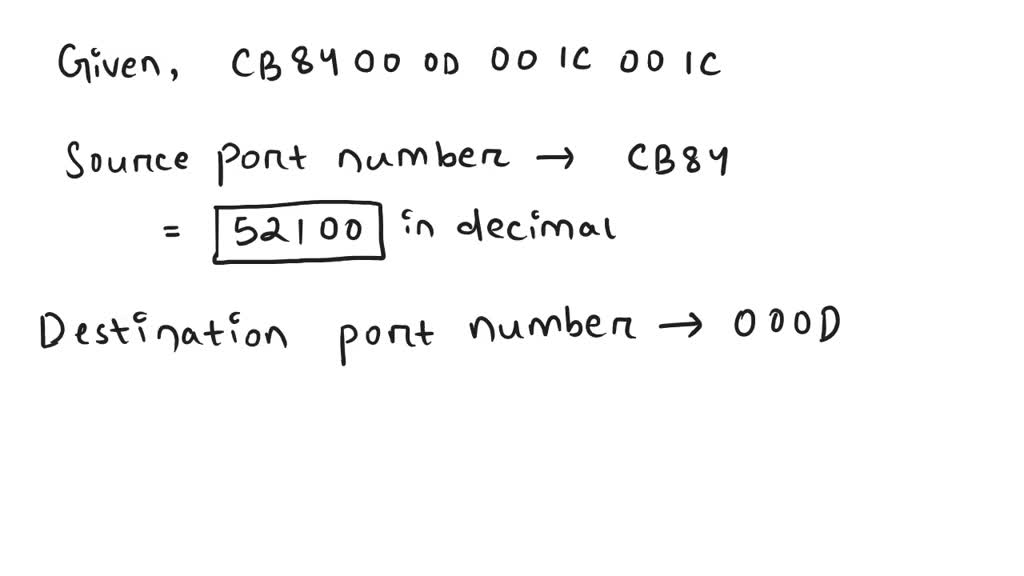 Given, CB84 00 0D 00 1C 00 1C
Source port number → CB84
= 52100 in decimal
Destination port number → 000D